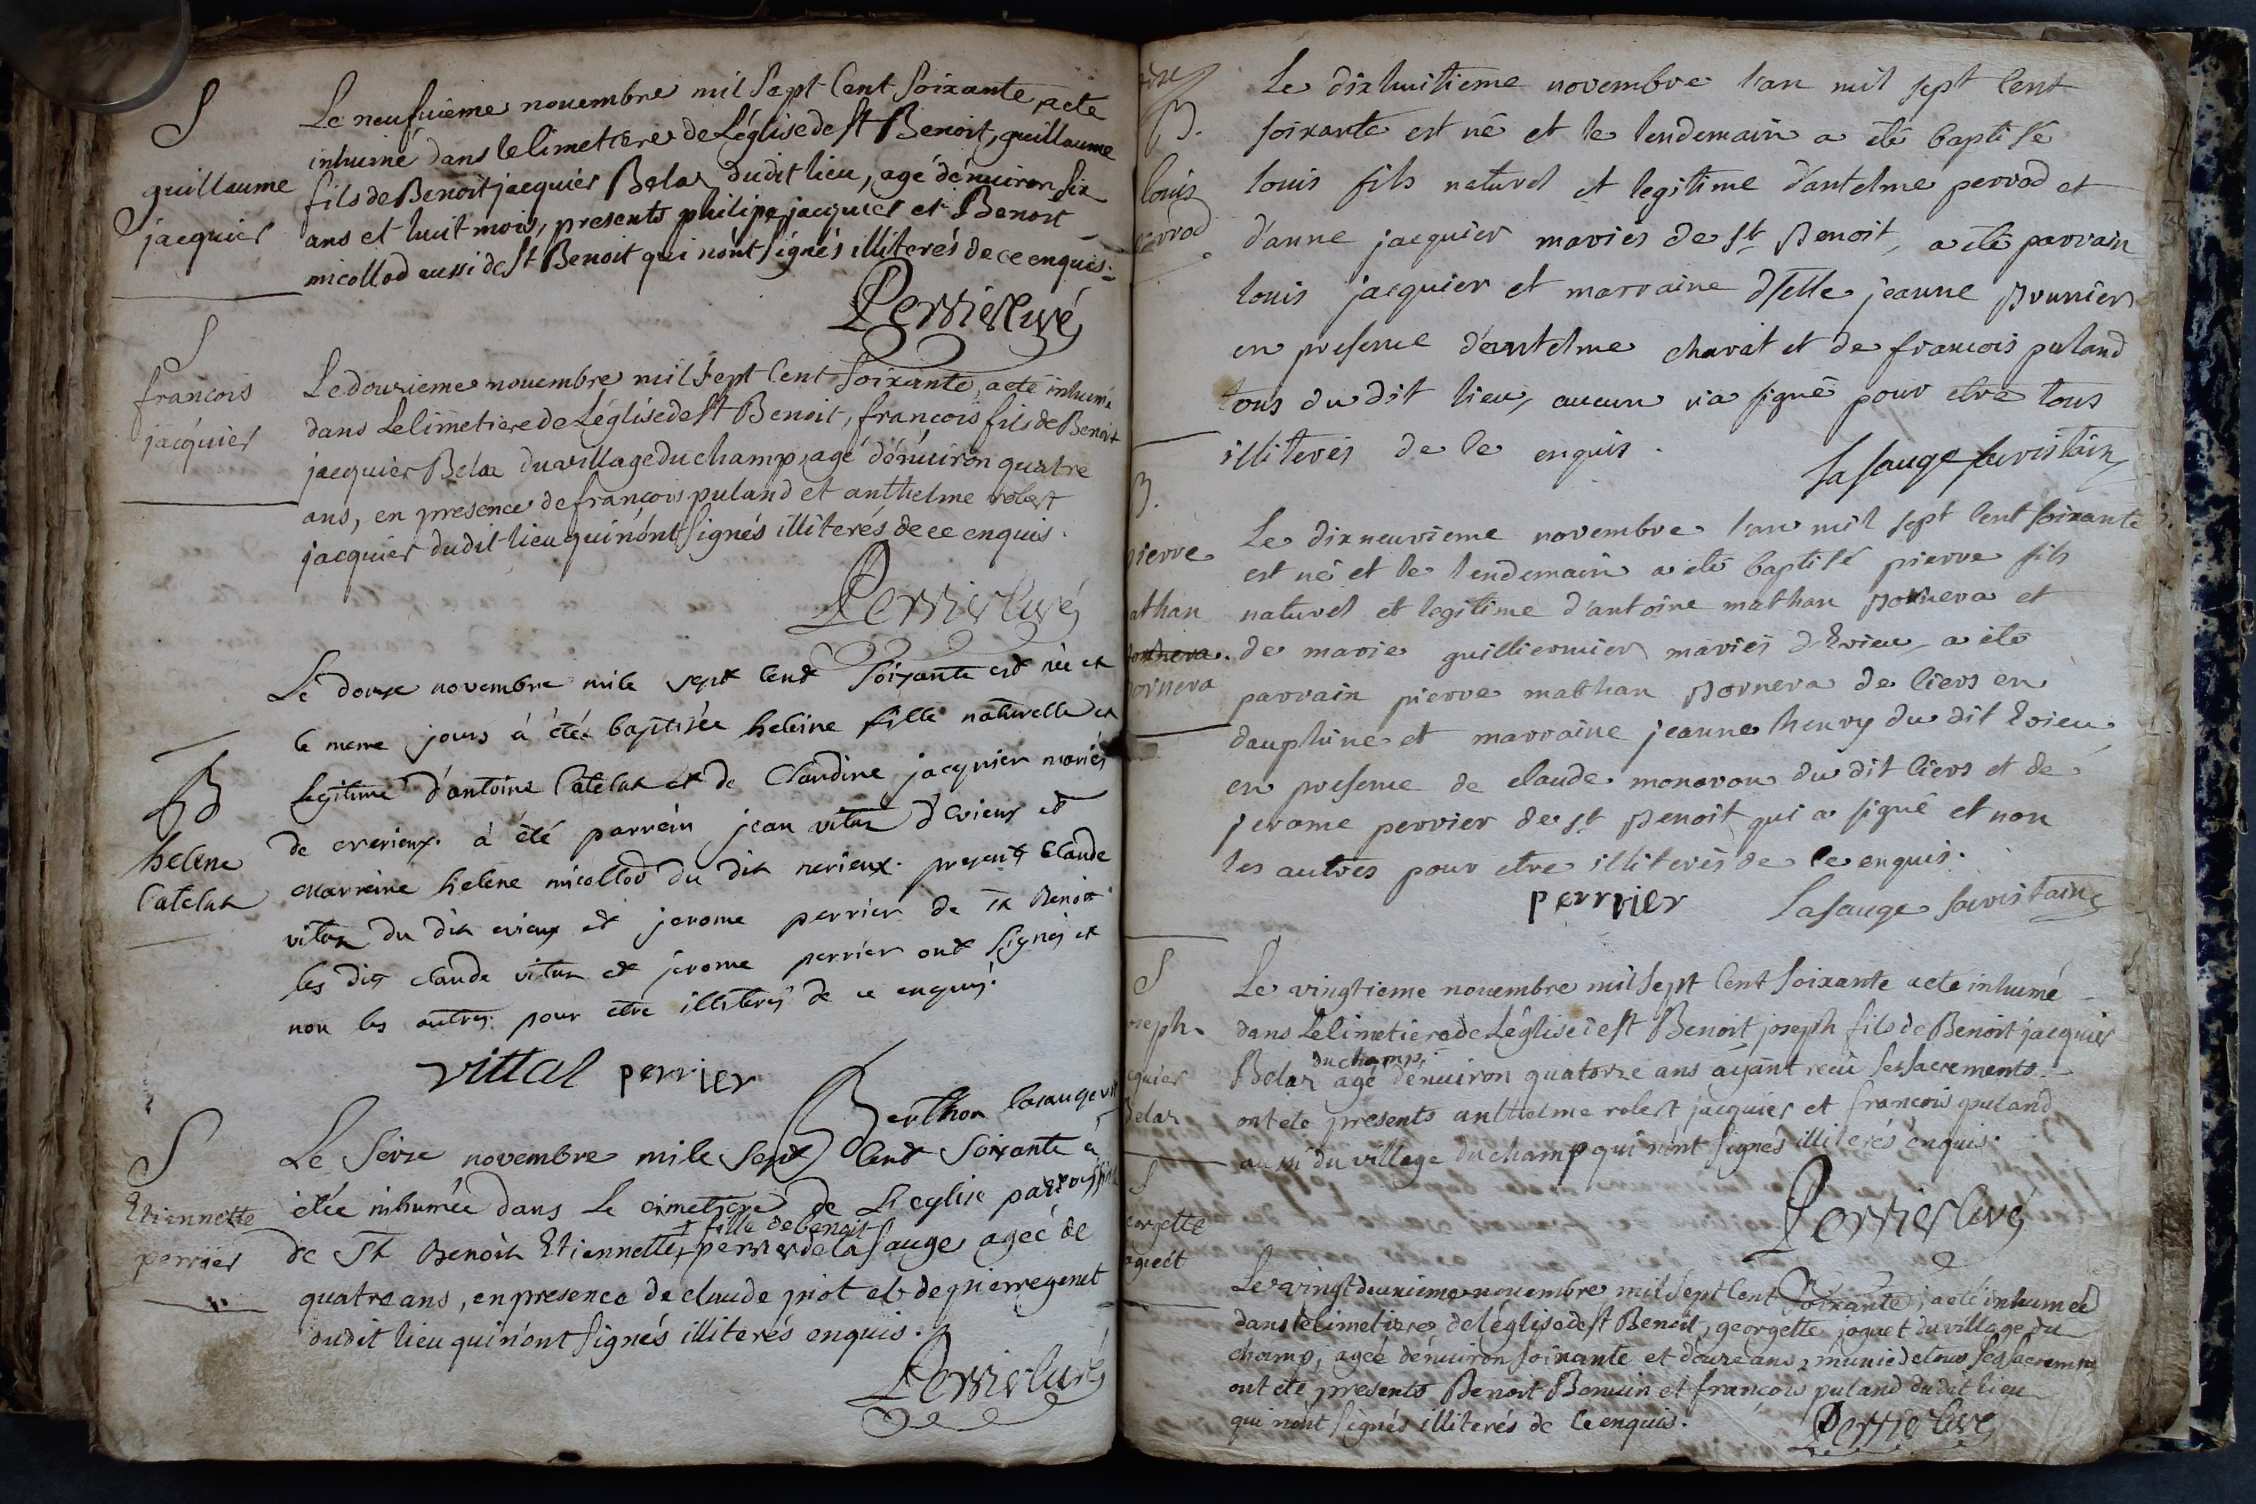 S
guillaume
jacquier
Le neufuieme nouembre mil Sept Cent Soixante, acte
inhumé dans le Cimettiere de L'église de St Benoit, guillaume
fils de Benoit jacquier Belaz dudit lieu, agé d'enuiron six
ans et huit mois, presents philipe jacquier et Benoit
micollod aussi de St Benoit qui n'ont signés illiterés de ce enquis.
Perrier Curé
S
francois
jacquier
Le douzieme nouembre mil Sept Cent Soixante, acté inhumé
dans Le Cimetiere de L'église de St Benoit, francois fils de Benoit
jacquier Belaz du village du champ, agé d'enuiron quatre
ans, en presence de francois puland et anthelme robert
jacquier dudit lieu qui n'ont signés illiterés de ce enquis.
Perrier Curé
B
helene
Catelat
Le douze novembre mile sept Cent Soixante est née et
le meme jours à étéé baptisée heleine fille naturelle et
legitime d'antoine Catelat et de Claudine jacquier mariés
de ererieux. à été parrein jean vitaz d'Evieux et
marreine helene micollod du dit nerieux. presents Claude
vitaz du dit evieux et jerome perrier de St Benoit
les dits Claude vitaz et jerome perrier ont signés et
non les autres pour etre illiterés de ce enquis.
vittal perrier
Berthon Lasauge
S
Etiennette
perrier
Le Seize novembre mile Sept Cent Soixante à
étée inhumée dans Le cimetiere de L'eglise parroissiale
+ fille de benoit
de St Benoit Etiennette + perrier de la Sauge agéé de
quatre ans, en presence de claude piot et de pierre genet
dudit lieu qui n'ont signés illiterés enquis.
Perrier Curé
B.
louis
perrod
Le dixhuitieme novembre l'an mil sept Cent
soixante est né et le lendemain a été baptisé
louis fils naturel et legitime d'antelme perrod et
d'anne jacquier mariés de St Benoit, a été parrain
louis jacquier et marraine dlelle jeanne Brunier
en presence d'antelme charat et de francois puland
tous du dit lieu, aucun n'a signé pour etre tous
illiterés de Ce enquis.
Lasauge sacristain
B.
pierre
athan
ornera
Le dixneuvieme novembre l'an mil sept Cent soixante
est né et le lendemain a été baptisé pierre fils
naturel et legitime d'antoine mathan Bornera et
de marie guilliermier mariés d'Evieu, a été
parrain pierre mathan Bornera de Ciers en
dauphiné et marraine jeanne henry du dit Evieu,
en presence de claude monavon du dit Ciers et de
jerome perrier de St Benoit qui a signé et non
les autres pour etre illiterés de Ce enquis.
perrrier Lasauge sacristain
S
oseph
cquier
Belaz
Le vingtieme nouembre mil Sept Cent Soixante acté inhumé
dans Le Cimetiere de L'église de St Benoit joseph fils de Benoit jacquier
du champ
Belaz agé d'enuiron quatorze ans ayant recu ses sacrements
ont eté presents anthelme robert jacquier et francois puland
aussi du village du champ qui n'ont signés illiterés enquis.
Perrier Curé
S
eorgette
oguet
Le vingt deuxieme nouembre mil Sept Cent Soixante, acté inhumeé
dans le Cimetiere de l'église de St Benoit, georgette joguet du village du
champ, ageé d'enuiron soixante et douze ans, munie de tous ses sacremts
ont eté presents Benoit Bernuin et francois puland dudit lieu
qui n'ont signés illiterés de Ce enquis.
Perrier Curé